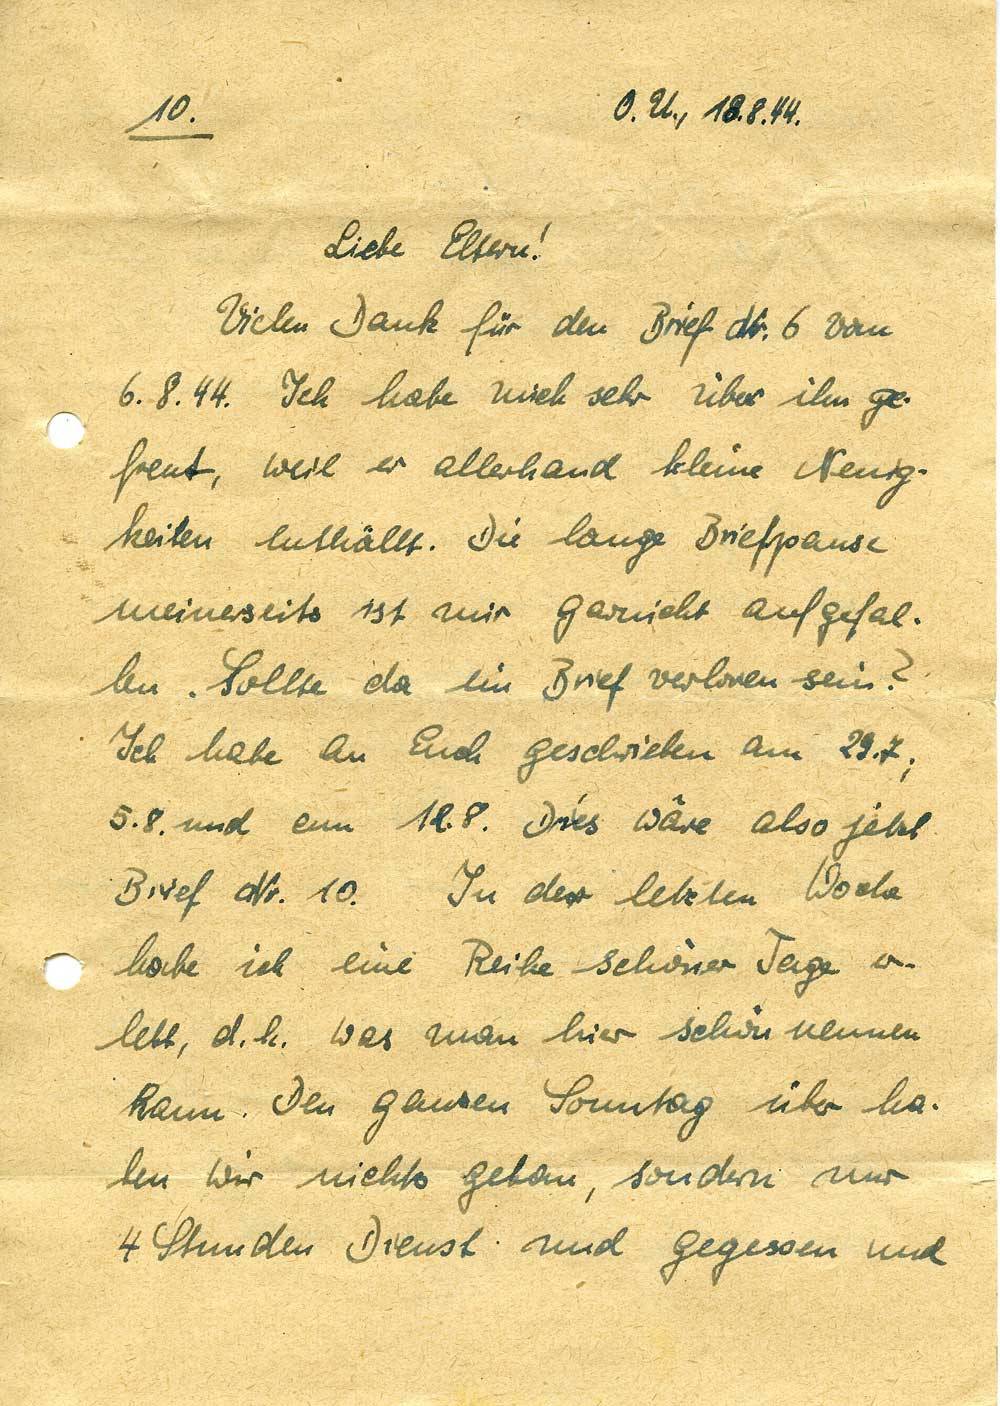 10.
O.U., 18.8.44.
Liebe Eltern!
Vielen Dank für den Brief Nr. 6 vom
6.8.44. Ich habe mich sehr über ihn ge-
freut, weil er allerhand kleine Neuig-
keiten enthällt. Die lange Briefpause
meinerseits ist mir garnicht aufgefal-
len. Sollte da ein Brief verloren sein?
Ich habe an Euch geschrieben am 29.7,
5.8. und am 12.8. Dies wäre also jetzt
Brief Nr. 10. In der letzten Woche
habe ich eine Reihe schöner Tage er-
lebt, d.h. was man hier schön nennen
kann. Den ganzen Sonntag über ha-
ben wir nichts getan, sondern nur
4 Stunden Dienst und gegessen und